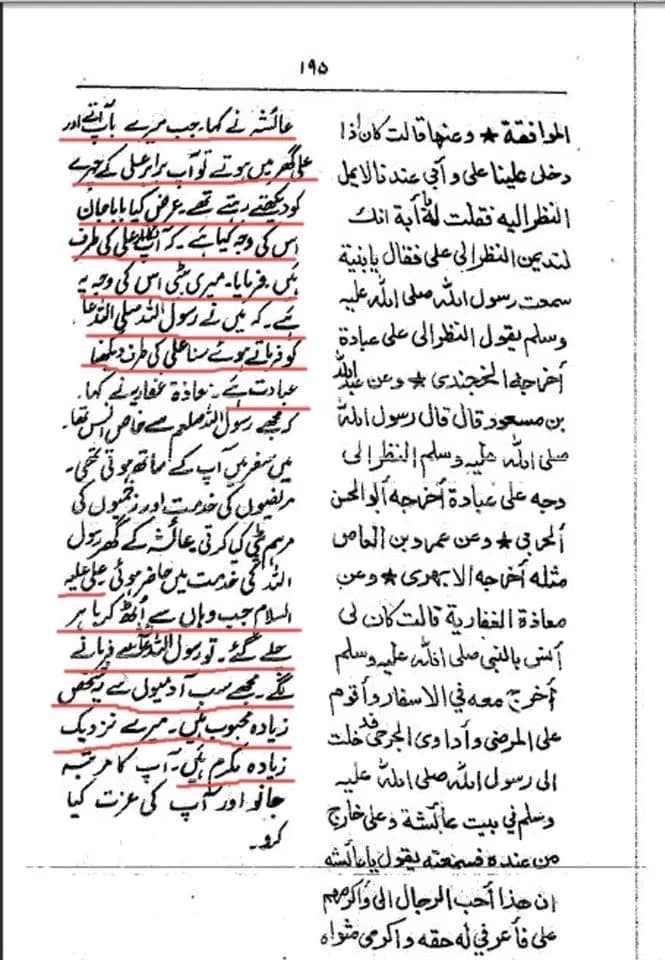 ۱۹۵
الموافقة ★ وعنها قالت كان اذا
دخل علينا على وأبي عندنا لايمل
النظر اليه فقلت له يا أبة انك
لتديمن النظر الى على فقال يا بنية
سمعت رسول الله صلى الله عليه
وسلم يقول النظر الى على عبادة
أخرجه الخجندى ★ وعن عبدالله
بن مسعود قال قال رسول الله
صلى الله عليه وسلم النظر الى
وجه على عبادة أخرجه أبو الحسن
الحربي ★ وعن عمرو بن العاص
مثله أخرجه الابهرى ★ وعن
معاذة الغفارية قالت كان لى
أنس بالنبي صلى الله عليه وسلم
أخرج معه في الاسفار وأقوم
على المرضى وأداوى الجرحى فدخلت
الى رسول الله صلى الله عليه
وسلم في بيت عائشة وعلى خارج
من عنده فسمعته يقول يا عائشة
ان هذا أحب الرجال الى وأكرمهم
على فأعرفي له حقه وأكرمى مثواه
عائشہ نے کہا۔ جب میرے باپ آتے اور
علی گھر میں ہوتے تو آپ برابر علی کے چہرے
کو دیکھتے رہتے تھے۔ عرض کیا بابا جان
اس کی وجہ کیا ہے۔ کہ آپ علی کی طرف
ہیں۔ فرمایا۔ میری بیٹی اس کی وجہ یہ
ہے۔ کہ میں نے رسول اللہ صلی اللہ
کو فرماتے ہوئے سنا علی کی طرف دیکھنا
عبادت ہے۔ معاذۃ غفاریہ نے کہا۔
کہ مجھے رسول اللہ صلعم سے خاص انس تھا۔
میں سفر میں آپ کے ساتھ ہوتی تھی۔
مریضوں کی خدمت اور زخمیوں کی
مرہم پٹی کیا کرتی۔ عائشہ کے گھر رسول
اللہ کی خدمت میں حاضر ہوئی علی علیہ
السلام جب وہاں سے اُٹھ کر باہر
چلے گئے۔ تو رسول اللہ عائشہ سے فرمانے
لگے۔ مجھے سب آدمیوں سے یہ شخص
زیادہ محبوب ہیں۔ میرے نزدیک
زیادہ مکرم ہیں۔ آپ کا مرتبہ
جانو اور آپ کی عزت کیا
کرو۔